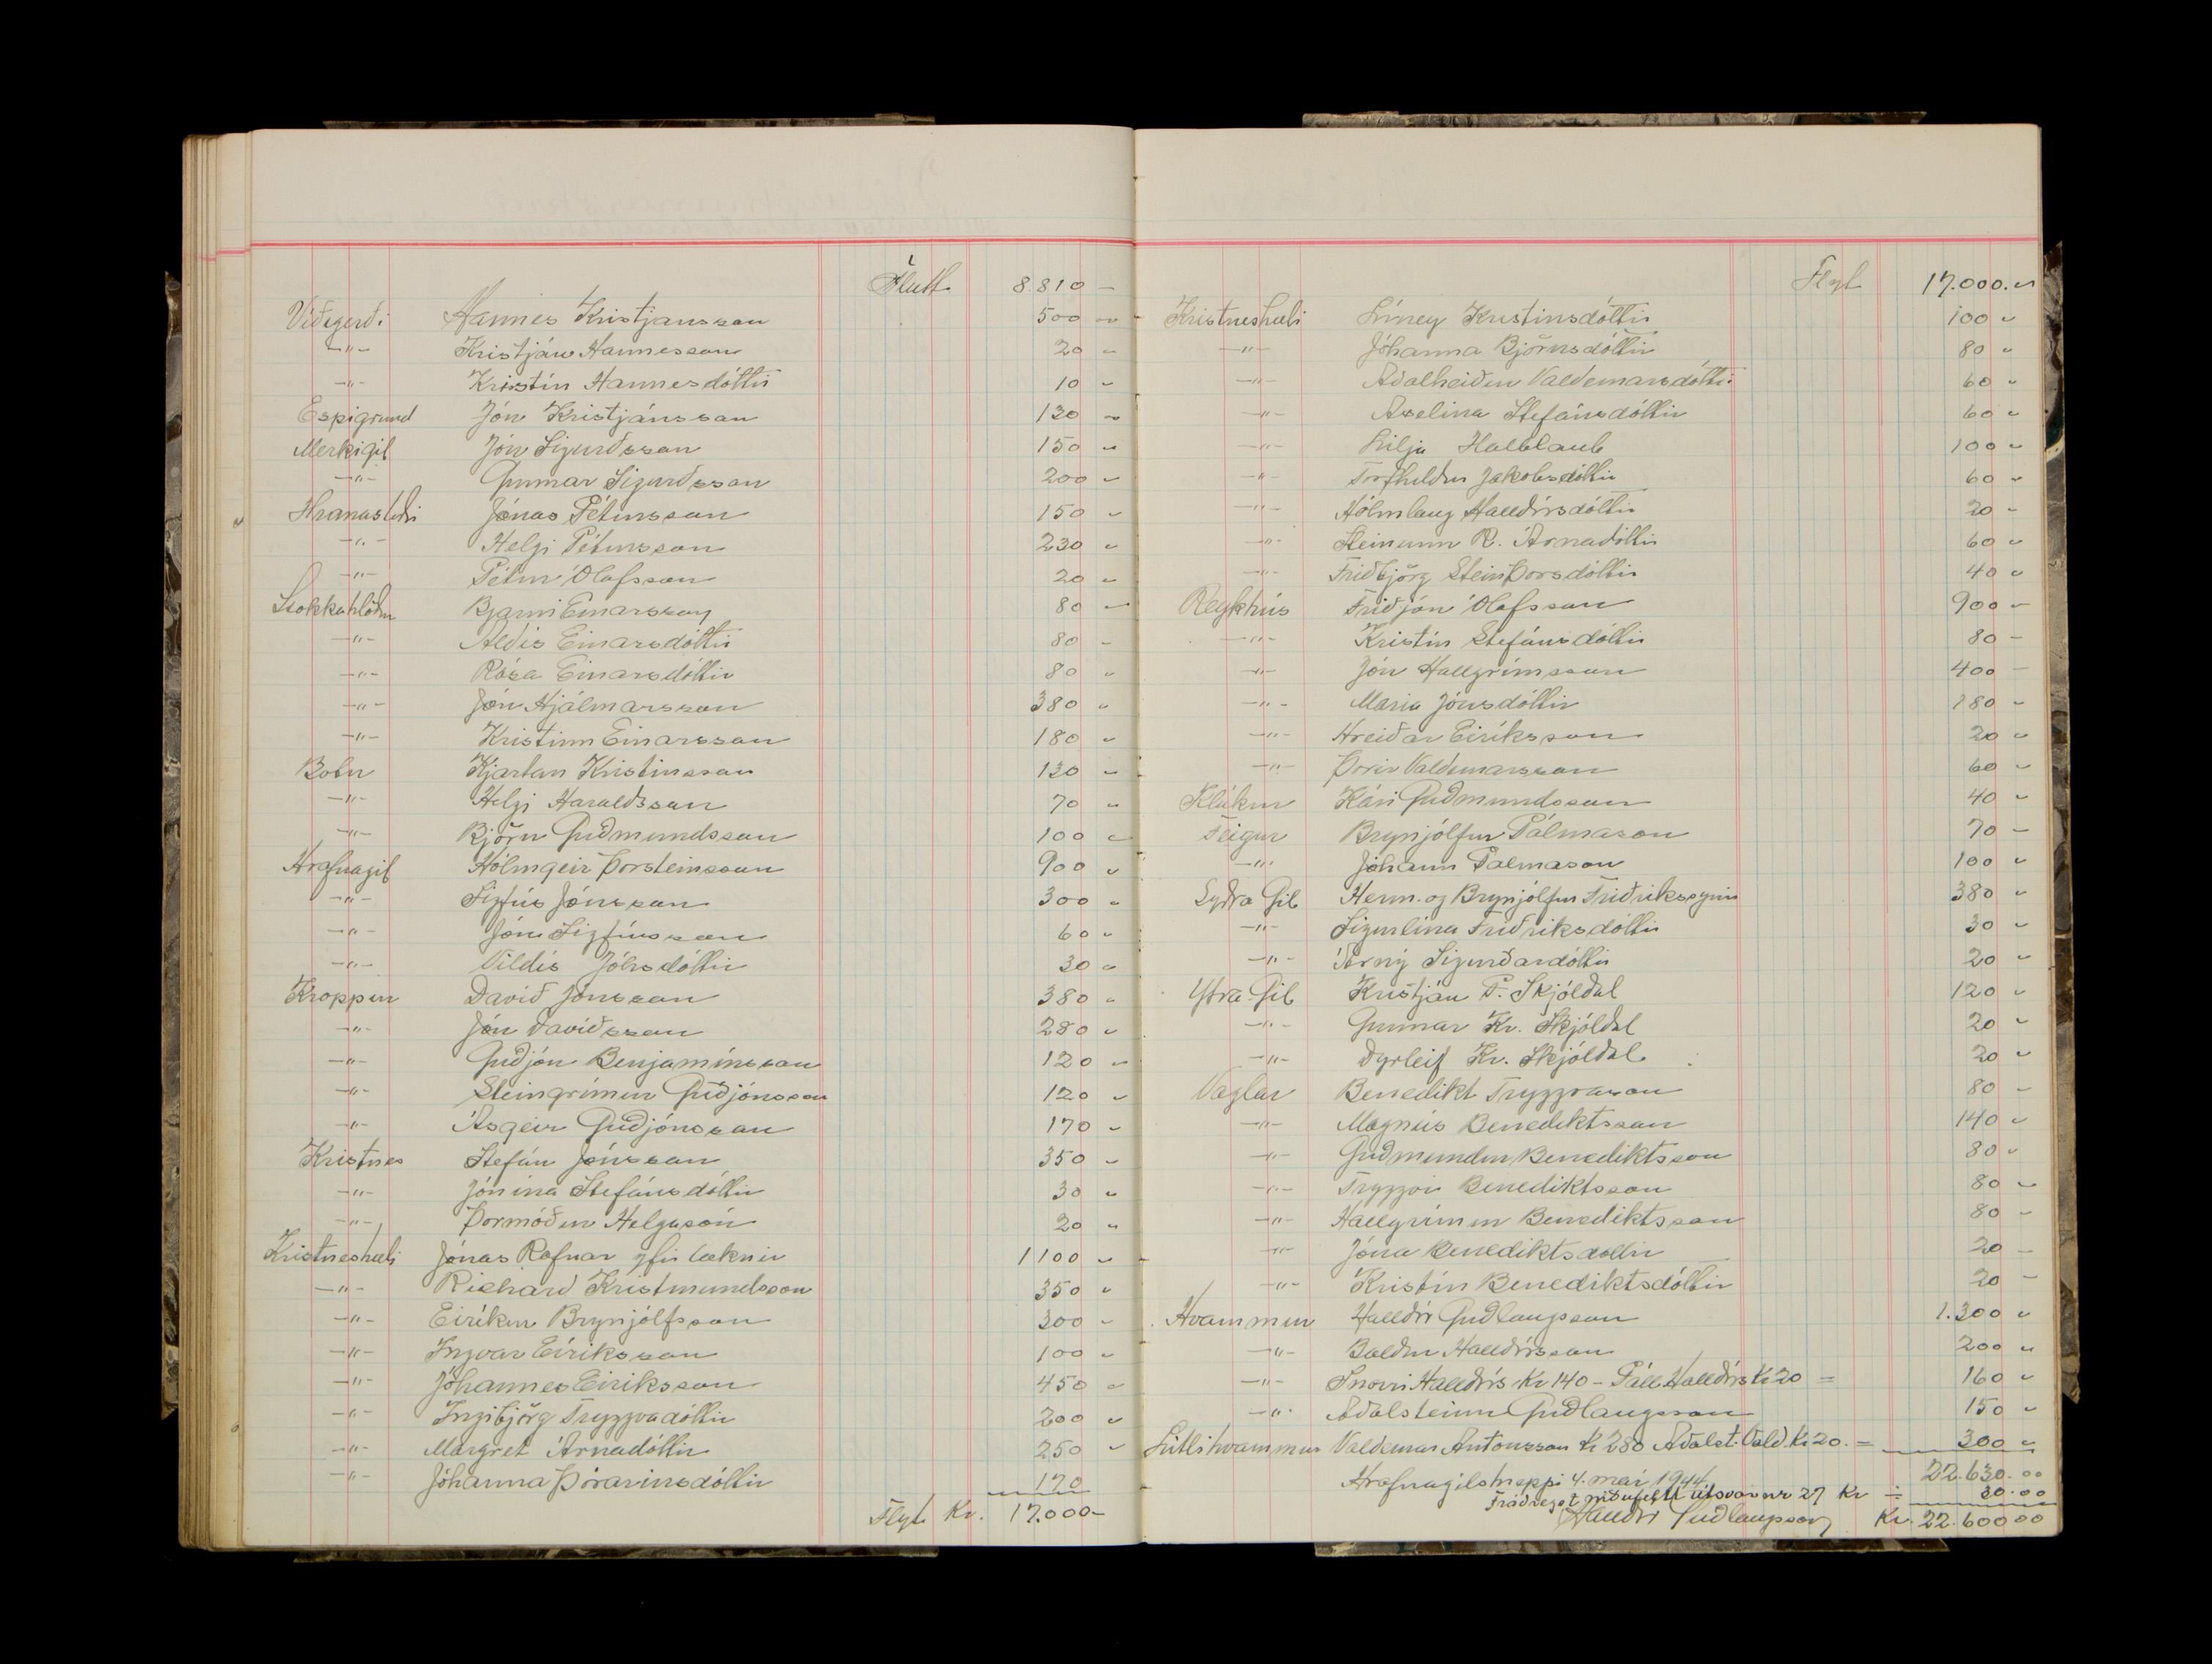 Flutt 8.810 —
Víðigerði Hannes Kristjánsson 500 "
—"— Kristján Hannesson 20 "
—"— Kristín Hannesdóttir 10 "
Espigrund Jón Kristjánsson 130 "
Merkigil Jón Sigurðsson 150 "
—"— Gunnar Sigurðsson 200 "
Hranastaðir Jónas Pétursson 150 "
—"— Helgi Pétursson 230 "
—"— Pétur Ólafsson 20 "
Stokkahlöðum Bjarni Einarsson 80 "
—"— Aldís Einarsdóttir 80 "
—"— Rósa Einarsdóttir 80 "
—"— Jón Hjálmarsson 380 "
—"— Kristinn Einarsson 180 "
Botn Kjartan Kristinsson 130 "
—"— Helgi Haraldsson 70 "
—"— Björn Guðmundsson 100 "
Hrafnagil Hólmgeir Þorsteinsson 900 "
—"— Sigfús Jónsson 300 "
—"— Jón Sigfússon 60 "
—"— Vildís Jónsdóttir 30 "
Kroppur Davíð Jónsson 380 "
—"— Jón Davíðsson 280 "
—"— Guðjón Benjamínsson 120 "
—"— Steingrímur Guðjónsson 120 "
—"— Ásgeir Guðjónsson 170 "
Kristnes Stefán Jónsson 350 "
—"— Jónína Stefánsdóttir 30 "
—"— Þormóður Helgason 20 "
Kristneshæli Jónas Rafnar yfirlæknir 1100 "
—"— Richard Kristmundsson 350 "
—"— Eiríkur Brynjólfsson 300 "
—"— Ingvar Eiríksson 100 "
—"— Jóhannes Eiríksson 450 "
—"— Ingibjörg Tryggvadóttir 200 "
—"— Margret Árnadóttir 250 "
—"— Jóhanna Þórarinsdóttir 170
Flyt Kr. 17.000—
Flyt 17.000.00
Kristneshæli Líney Kristinsdóttir 100 "
—"— Jóhanna Björnsdóttir 80 "
—"— Aðalheiður Valdemarsdóttir 60 "
—"— Axelina Stefánsdóttir 60 "
—"— Lilja Hallblaub 100 "
—"— Torfhildur Jakobsdóttir 60 "
—"— Hólmlaug Halldórsdóttir 20 "
—"— Steinunn R. Árnadóttir 60 "
—"— Friðbjörg Steinþorsdóttir 40 "
Reykhús Friðjón Ólafsson 900 "
—"— Kristín Stefánsdóttir 80 —
—"— Jón Hallgrímsson 400 —
—"— María Jónsdóttir 180 "
—"— Hreiðar Eiríksson 20 "
—"— Þorir Valdemarsson 60 "
Klúkur Kári Guðmundsson 40 "
Teigur Brynjólfur Pálmason 70 —
—"— Jóhann Palmason 100 "
Syðra Gil Herm. og Brynjólfur Friðrikssynir 380 "
—"— Sigurlína Friðriksdóttir 30 "
—"— Árný Sigurðardóttir 20 "
Ytra-Gil Kristján P. Skjóldal 120 "
—"— Gunnar Kr. Skjóldal 20 "
—"— Dyrleif Kr. Skjóldal. 20 "
Vaglar Benedikt Tryggvason 80 "
—"— Magnús Benediktsson 140 "
—"— Guðmundur Benediktsson 80 "
—"— Tryggvi Benediktsson 80 "
—"— Hallgrímur Benediktsson 80 "
—"— Jóna Benediktsdóttir 20 —
—"— Kristín Benediktsdóttir 20 —
Hvammur Halldór Guðlaugsson 1.300 "
—"— Baldur Halldórsson 200 "
—"— Snorri Halldórs Kr 140 – Páll Halldórs Kr 20 = 160 "
—"— Aðalsteinn Guðlaugsson 150 "
Litlihvammur Valdemar Antonsson Kr 280 Aðalst. Vald. Kr 20. = 300 "
Hrafnagilshreppi 4. maí 1944 22.630.00
Frádregst niðurfellt útsvar nr 27 Kr ÷ 30.00
Halldór Guðlaugsson Kr. 22.600 00